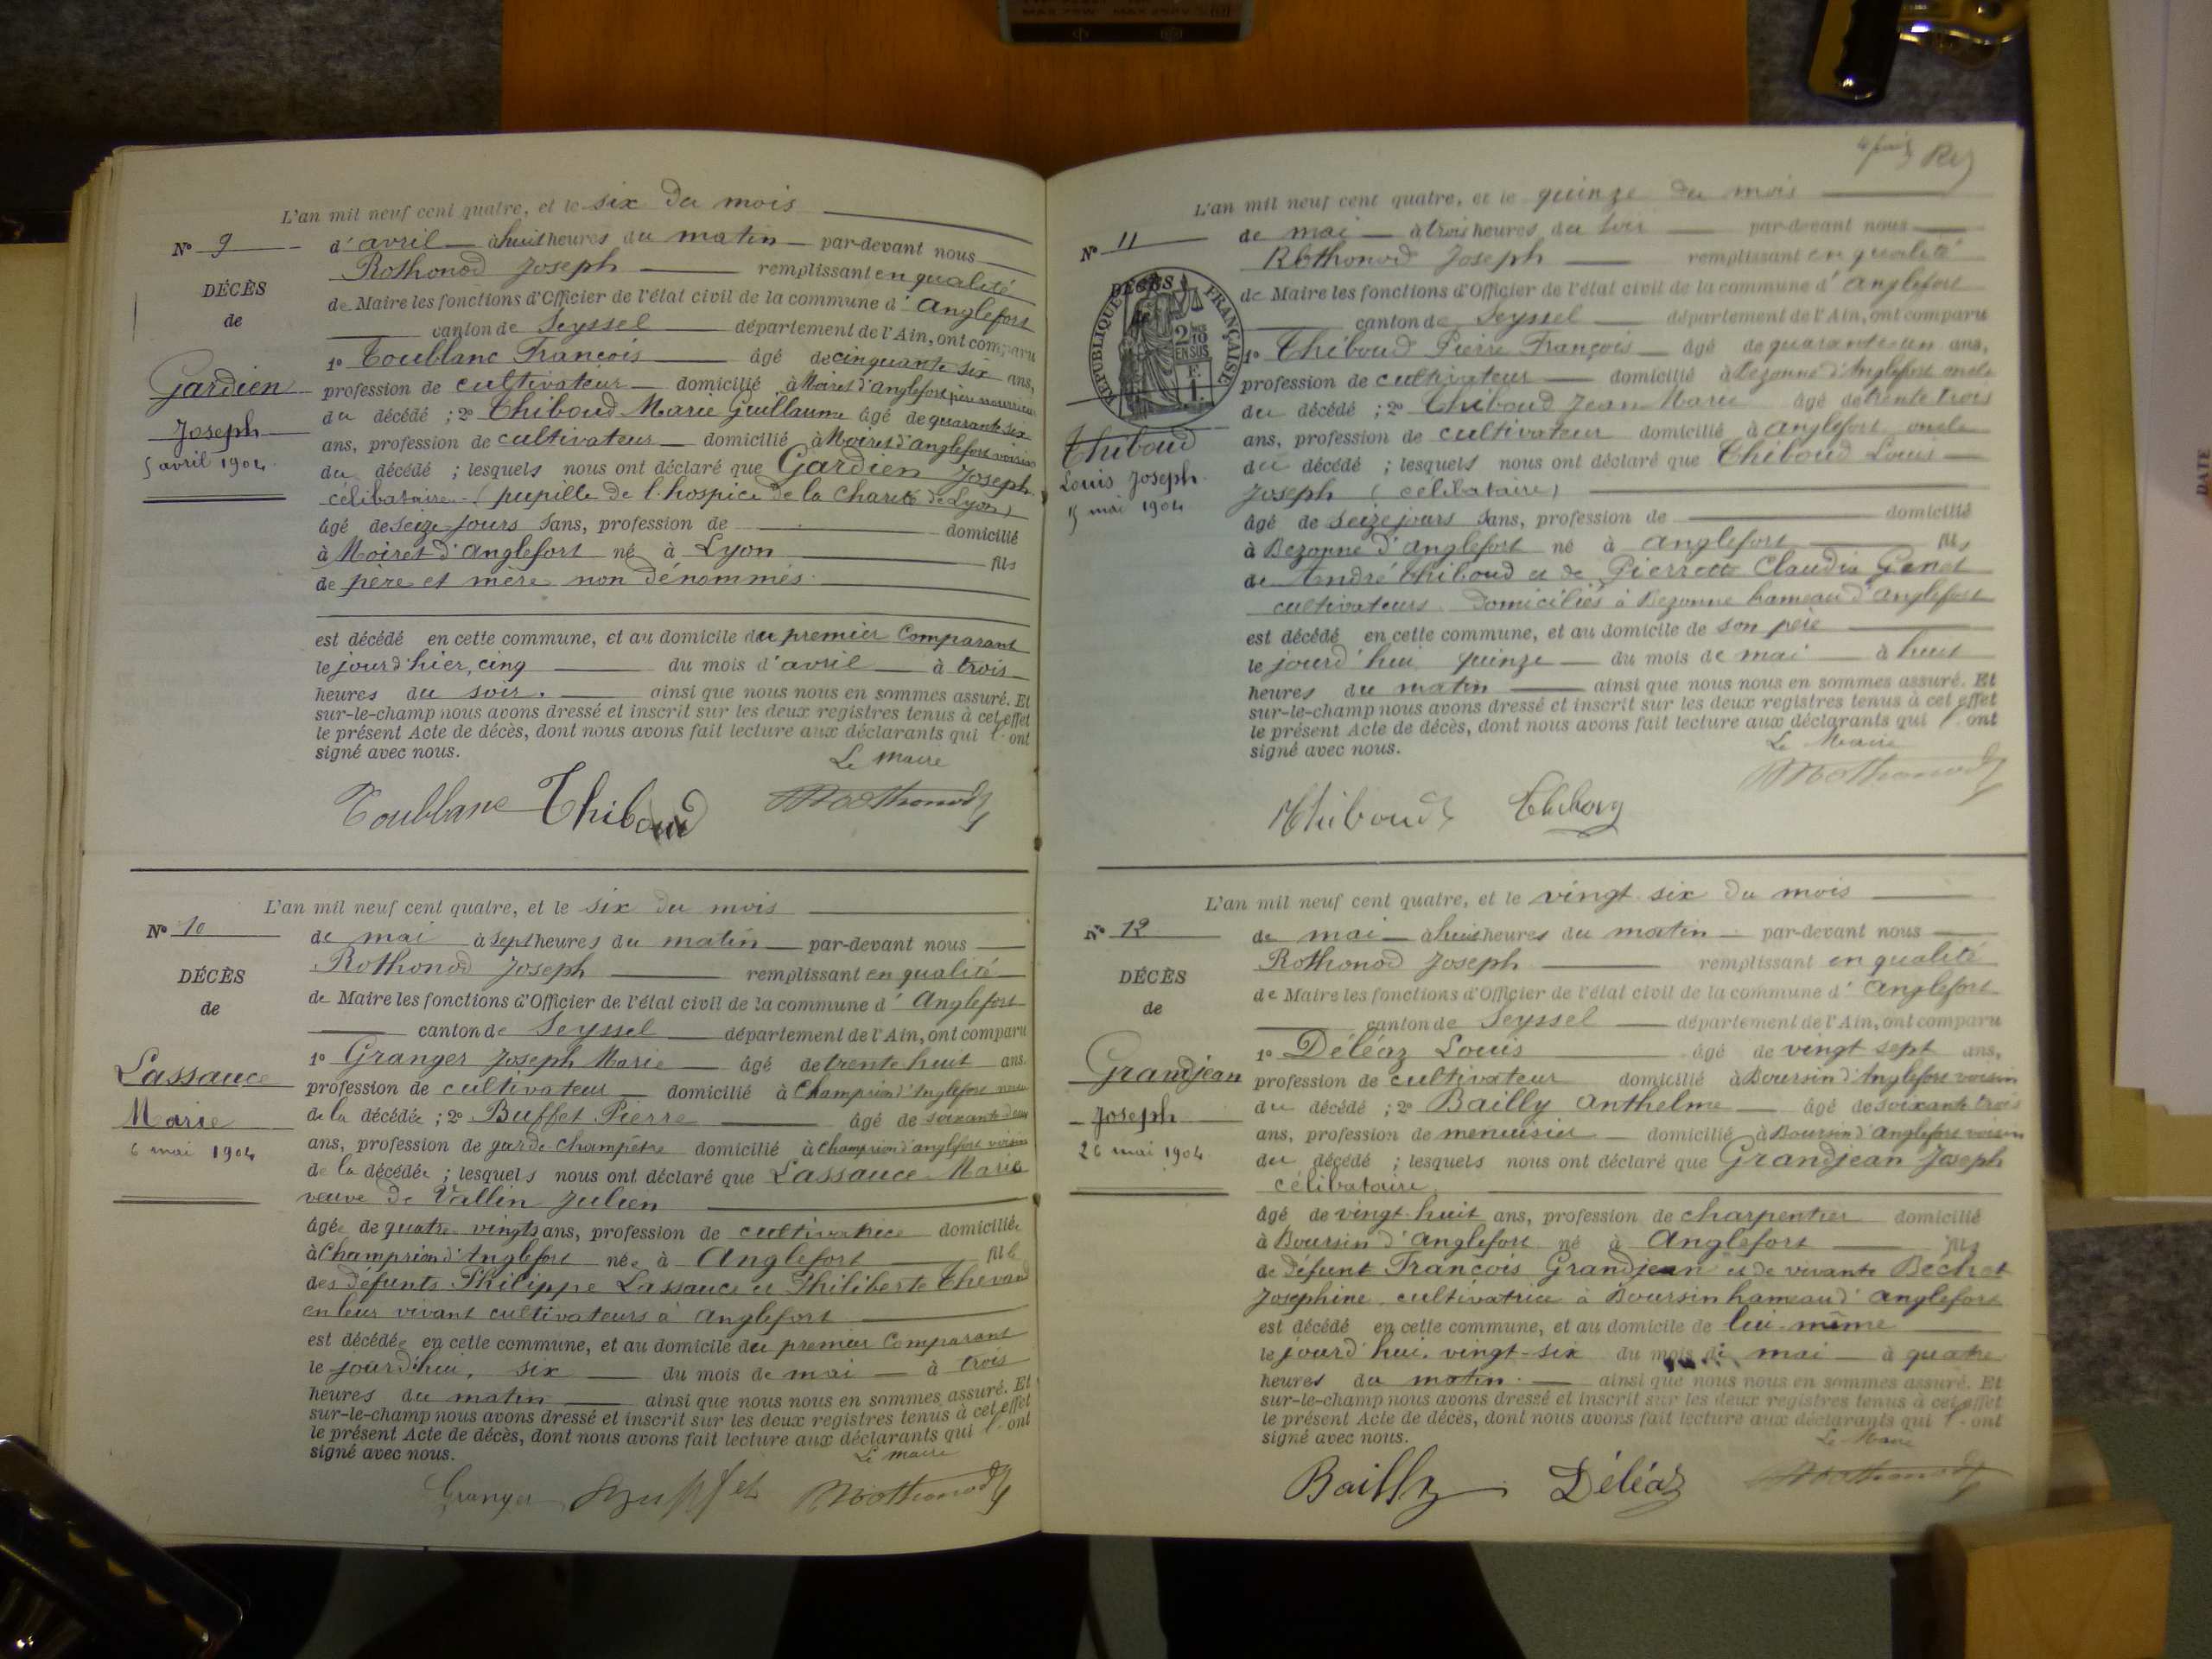 L'an mil neuf cent quatre, et le six du mois
N° 9
d'avril à huit heures du matin par-devant nous
Rothonod Joseph remplissant en qualité
DÉCÈS
de Maire les fonctions d'Officier de l'état civil de la commune d'Anglefort
de
canton de Seyssel département de l'Ain, ont comparu
1° Toublanc François âgé de cinquante six ans,
Gardien
profession de cultivateur domicilié à Moiret d'Anglefort père nourricier
du décédé ; 2° Thiboud Marie Guillaume âgé de quarante six
Joseph
ans, profession de cultivateur domicilié à Moiret d'Anglefort voisin
5 avril 1904
du décédé ; lesquels nous ont déclaré que Gardien Joseph
célibataire (pupille de l'hospice de la charité de Lyon)
âgé de seize jours sans, profession de domicilié
à Moiret d'Anglefort né à Lyon fils
de père et mère non dénommés.
est décédé en cette commune, et au domicile du premier Comparant
le jour d'hier, cinq du mois d'avril à trois
heures du soir. ainsi que nous nous en sommes assuré. Et
sur-le-champ nous avons dressé et inscrit sur les deux registres tenus à cet effet
le présent Acte de décès, dont nous avons fait lecture aux déclarants qui l'ont
signé avec nous.
Le Maire
Toublanc Thiboud Rothonod
L'an mil neuf cent quatre, et le six du mois
N° 10
de mai à sept heures du matin par-devant nous
Rothonod Joseph remplissant en qualité
DÉCÈS
de Maire les fonctions d'Officier de l'état civil de la commune d'Anglefort
de
canton de Seyssel département de l'Ain, ont comparu
1° Granger Joseph Marie âgé de trente huit ans.
Lassauce
profession de cultivateur domicilié à Champrion d'Anglefort
Marie
de la décédée ; 2° Buffet Pierre âgé de soixante deux
6 mai 1904
ans, profession de garde champêtre domicilié à Champrion d'Anglefort voisin
de la décédée ; lesquels nous ont déclaré que Lassauce Marie
veuve de Vallin Julien
âgée de quatre-vingts ans, profession de cultivatrice domiciliée
à Champrion d'Anglefort née à Anglefort fille
des défunts Philippe Lassauce et Philiberte Thevand
en leur vivant cultivateurs à Anglefort
est décédée en cette commune, et au domicile du premier Comparant
le jourd'hui, six du mois de mai à trois
heures du matin ainsi que nous nous en sommes assuré. Et
sur-le-champ nous avons dressé et inscrit sur les deux registres tenus à cet effet
le présent Acte de décès, dont nous avons fait lecture aux déclarants qui l'ont
signé avec nous.
Le Maire
Granger Buffet Rothonod
Rey
L'an mil neuf cent quatre, et le quinze du mois
N° 11
de mai à trois heures du soir par-devant nous
Rothonod Joseph remplissant en qualité
DÉCÈS
de Maire les fonctions d'Officier de l'état civil de la commune d'Anglefort
RÉPUBLIQUE FRANÇAISE
2/10 EN SUS
F. 1.
canton de Seyssel département de l'Ain, ont comparu
1° Thiboud Pierre François âgé de quarante-un ans,
profession de cultivateur domicilié à Bezonne d'Anglefort oncle
du décédé ; 2° Thiboud Jean Marie âgé de trente trois
Thiboud
ans, profession de cultivateur domicilié à Anglefort oncle
Louis Joseph
du décédé ; lesquels nous ont déclaré que Thiboud Louis
15 mai 1904
Joseph (célibataire)
âgé de seize jours sans, profession de domicilié
à Bezonne d'Anglefort né à Anglefort fils
de André Thiboud et de Pierrette Claudia Genet
cultivateurs domiciliés à Bezonne hameau d'Anglefort
est décédé en cette commune, et au domicile de son père
le jourd'hui quinze du mois de mai à huit
heures du matin ainsi que nous nous en sommes assuré. Et
sur-le-champ nous avons dressé et inscrit sur les deux registres tenus à cet effet
le présent Acte de décès, dont nous avons fait lecture aux déclarants qui l'ont
signé avec nous.
Le Maire
Thiboud Rothonod
L'an mil neuf cent quatre, et le vingt-six du mois
N° 12
de mai à huit heures du matin par-devant nous
Rothonod Joseph remplissant en qualité
DÉCÈS
de Maire les fonctions d'Officier de l'état civil de la commune d'Anglefort
de
canton de Seyssel département de l'Ain, ont comparu
1° Déléaz Louis âgé de vingt sept ans,
Grandjean
profession de cultivateur domicilié à Boursin d'Anglefort voisin
Joseph
du décédé ; 2° Bailly Anthelme âgé de soixante trois
ans, profession de menuisier domicilié à Boursin d'Anglefort voisin
26 mai 1904
du décédé ; lesquels nous ont déclaré que Grandjean Joseph
célibataire
âgé de vingt-huit ans, profession de charpentier domicilié
à Boursin d'Anglefort né à Anglefort fils
de défunt François Grandjean et de vivante Béchet
Josephine cultivatrice à Boursin hameau d'Anglefort
est décédé en cette commune, et au domicile de lui-même
le jourd'hui, vingt-six du mois de mai à quatre
heures du matin. ainsi que nous nous en sommes assuré. Et
sur-le-champ nous avons dressé et inscrit sur les deux registres tenus à cet effet
le présent Acte de décès, dont nous avons fait lecture aux déclarants qui l'ont
signé avec nous.
Le Maire
Bailly Déléaz Rothonod
DATE